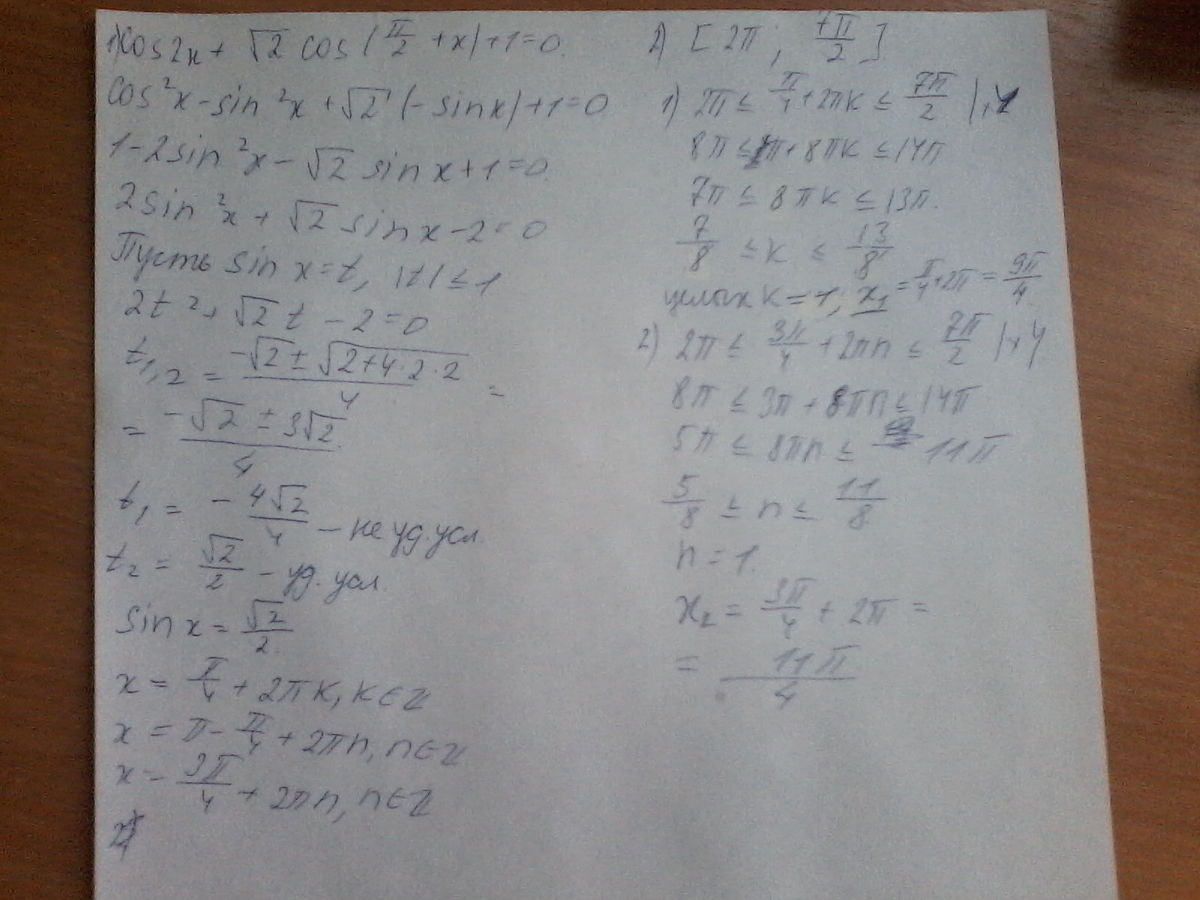 1) cos2x + √2 cos(π/2 + x) + 1 = 0.
cos²x - sin²x + √2 (-sinx) + 1 = 0
1 - 2sin²x - √2 sinx + 1 = 0.
2sin²x + √2 sinx - 2 = 0
Пусть sin x = t, |t| ≤ 1
2t² + √2 t - 2 = 0
t₁,₂ = (-√2 ± √(2+4·2·2))/4 =
= (-√2 ± 3√2)/4
t₁ = - 4√2/4 - не уд. усл.
t₂ = √2/2 - уд. усл.
sin x = √2/2.
x = π/4 + 2πk, k ∈ Z
x = π - π/4 + 2πn, n ∈ Z
x = 3π/4 + 2πn, n ∈ Z
2) [2π ; 7π/2]
1) 2π ≤ π/4 + 2πk ≤ 7π/2 | ×4
8π ≤ π + 8πk ≤ 14π
7π ≤ 8πk ≤ 13π.
7/8 ≤ k ≤ 13/8
целых k = 1; x₁ = π/4 + 2π = 9π/4.
2) 2π ≤ 3π/4 + 2πn ≤ 7π/2 | ×4
8π ≤ 3π + 8πn ≤ 14π
5π ≤ 8πn ≤ 11π
5/8 ≤ n ≤ 11/8
n = 1.
x₂ = 3π/4 + 2π =
= 11π/4